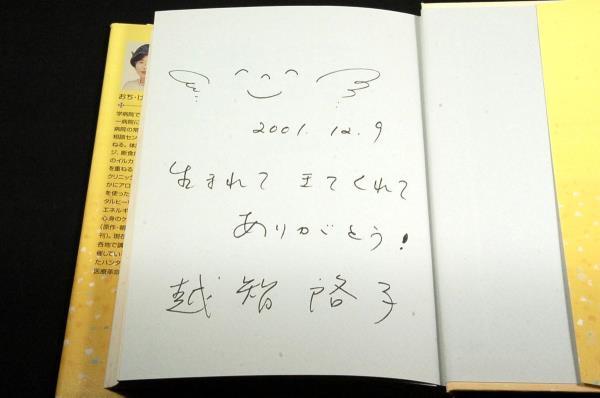 おち・け
学病院で
一病院に
病院の常
相談セン
ねる。体
ジ、断食
のイルカ
を重ねる
クリニック
かにアロ
を使った
タルヒーリ
エネルギ
心身のケ
(原作・朝
刊)。現在
各地で講
催してい
たハンタ
医療革命
2001.12.9
生まれて きてくれて
ありがとう!
越智啓子